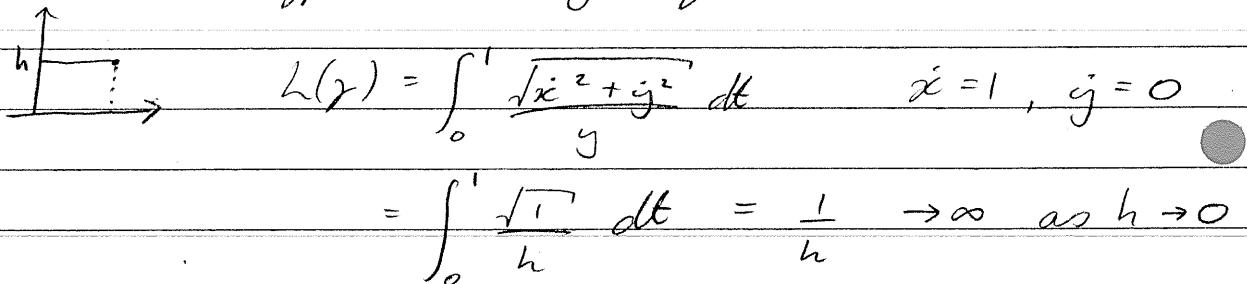 h
L(γ) = ∫₀¹ √(ẋ² + ẏ²) / y dt ẋ = 1 , ẏ = 0
= ∫₀¹ √1 / h dt = 1/h → ∞ as h → 0